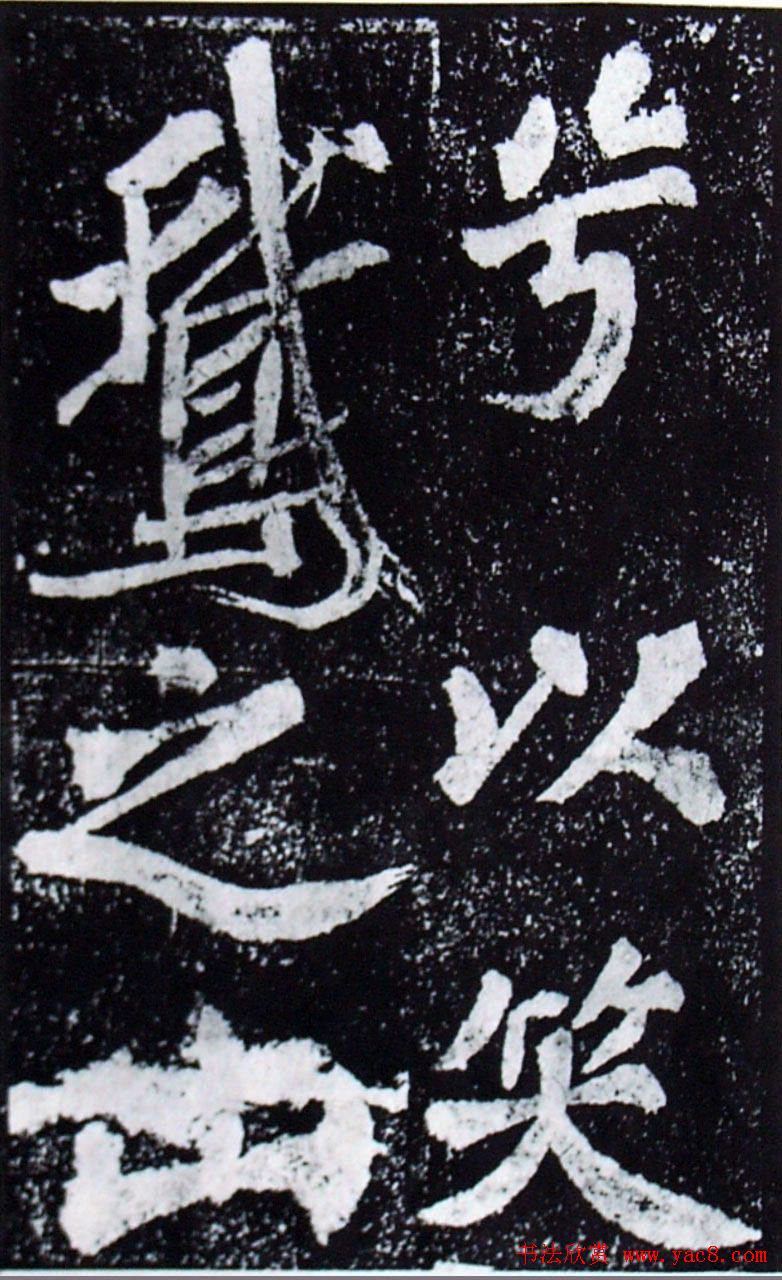 兮以笑
鵞之山
书法欣赏 www.yac8.com